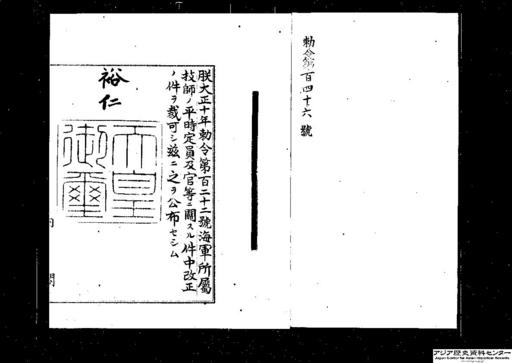 勅令第百四十六號
朕大正十年勅令第百二十二號海軍所屬
技師ノ平時定員及官等ニ關スル件中改正
ノ件ヲ裁可シ茲ニ之ヲ公布セシム
裕仁
天皇
御璽
内閣
アジア歴史資料センター
Japan Center for Asian Historical Records